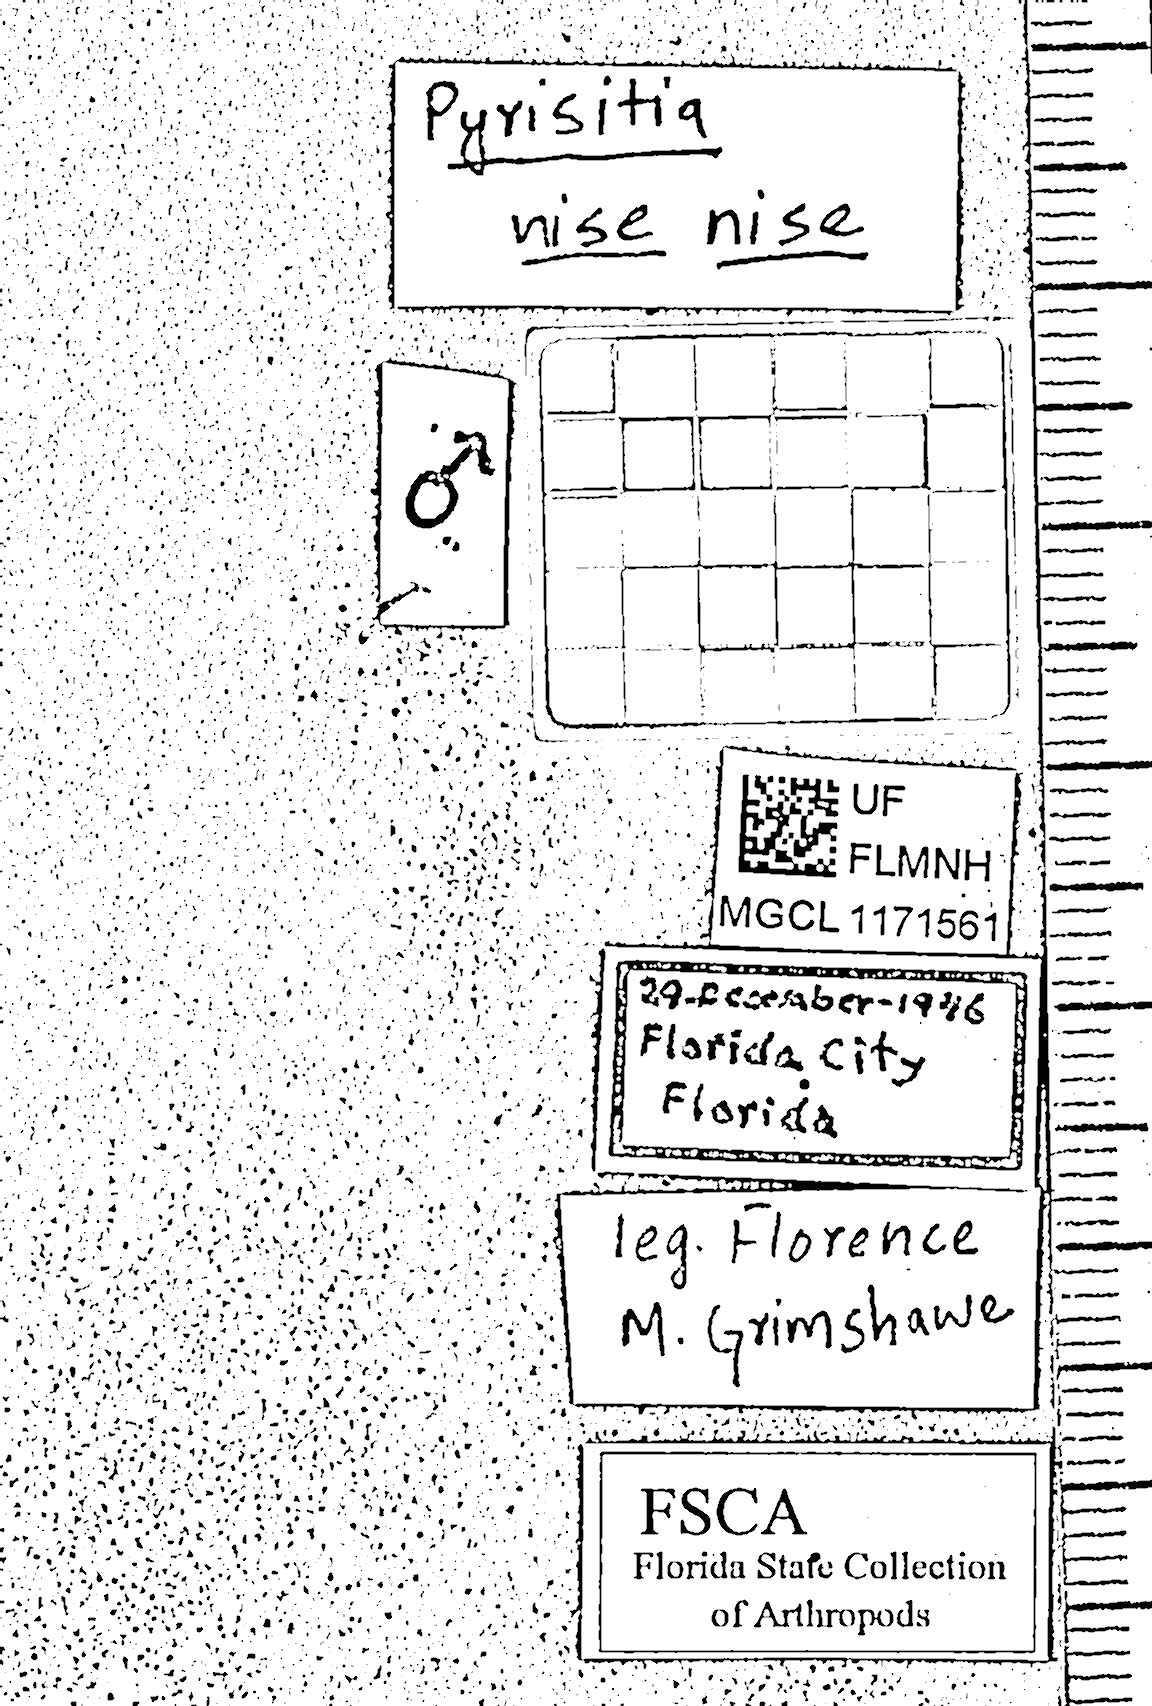 Pyrisitia
nise nise
♂
UF
FLMNH
MGCL 1171561
29-December-1946
Florida City
Florida
leg. Florence
M. Grimshawe
FSCA
Florida State Collection
of Arthropods